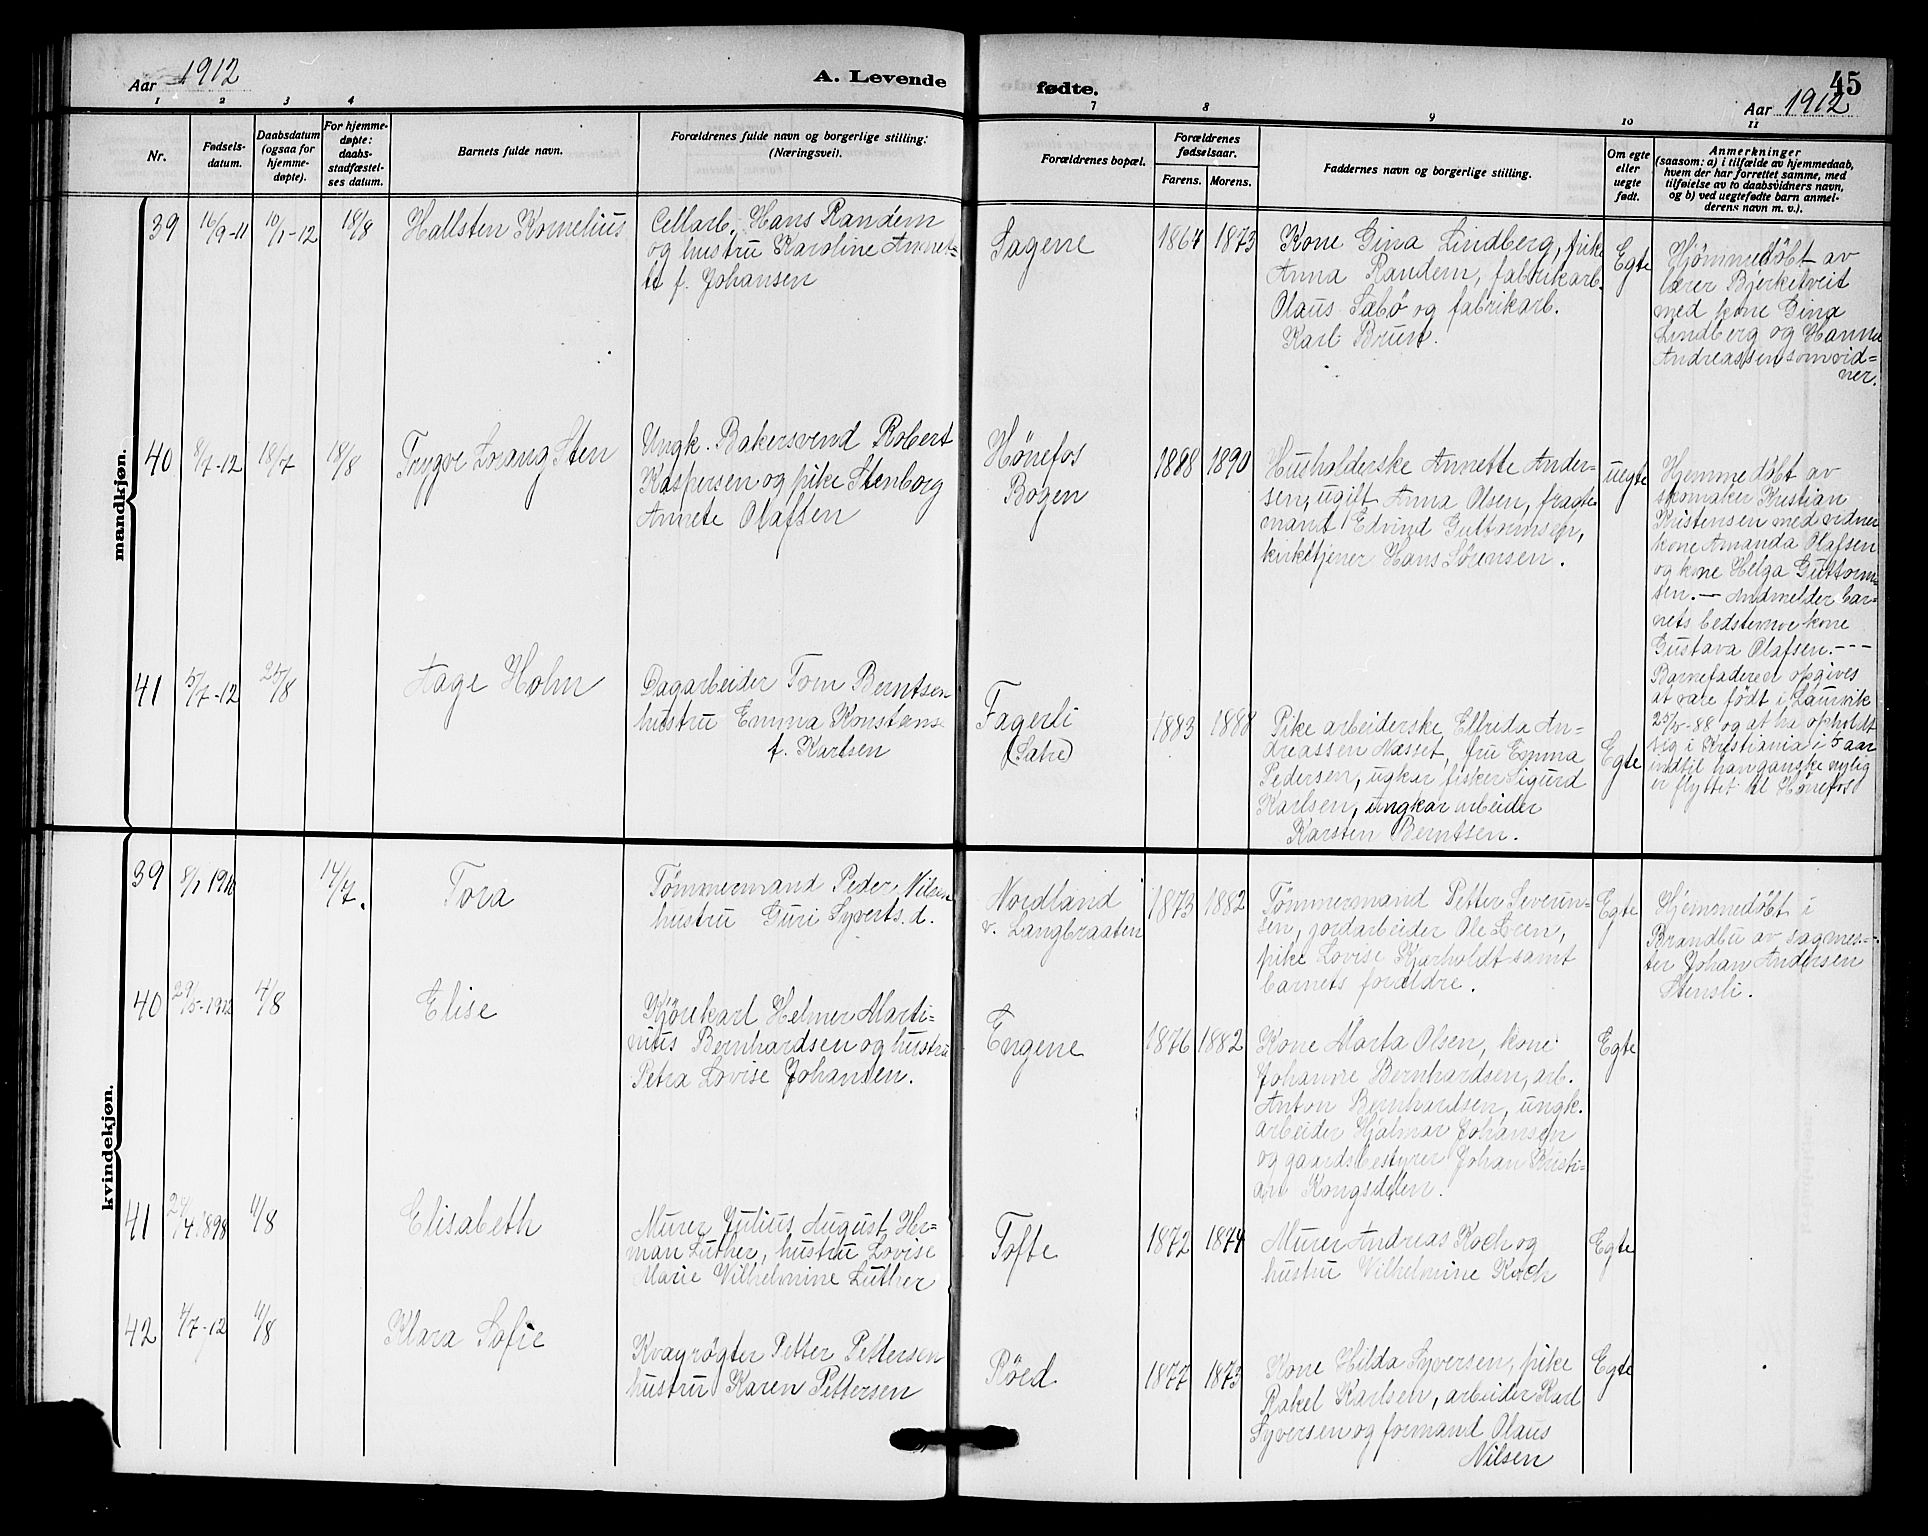 Aar 1912
A. Levende
fødte.
45
Aar 1912
1 2 3 4 7 8 9 10 11
Nr.
Fødsels-
datum.
Daabsdatum
(ogsaa for
hjemme-
døpte).
For hjemme-
døpte:
daabs-
stadfæstel-
ses datum.
Barnets fulde navn.
Forældrenes fulde navn og borgerlige stilling:
(Næringsvei).
Forældrenes bopæl.
Forældrenes
fødselsaar.
Farens. Morens.
Faddernes navn og borgerlige stilling.
Om egte
eller
uegte
født.
Anmerkninger
(saasom: a) i tilfælde av hjemmedaab,
hvem der har forrettet samme, med
tilføielse av to daabsvidners navn,
og b) ved uegtefødte barn anmel-
derens navn m. v.).
mandkjøn.
39
16/9-11
10/1-12
18/8
Hallsten Kornelius
Cellarb. Hans Randem
og hustru Karoline Annet-
te f. Johansen
Sagene
1864 1873
Kone Gina Lindberg, pike
Anna Randem, fabrikarb.
Olaus Sabö og fabrikarb.
Karl Brun.
Egte
Hjømmedöbt av
lærer Bjerketveit
med kone Gina
Lindberg og Hanna
Andreassen som vid=
ner.
40
8/7-12
18/7
18/8
Trygve Lorang Sten
Ungk. Bakersvend Robert
Kaspersen og pike Stenborg
Annete Olafsen
Hönefos
Bogen
1888 1890
Husholderske Annette Ander-
sen, ugift Anna Olsen, fragte
mand Edvind Guttormsen,
kirketjener Hans Sörensen.
uegte
Hjemmedöbt av
skomaker Kristian
Kristensen med vidner
kone Amanda Olafsen
og kone Helga Guttorm-
sen. — Andmelder bar=
nets bedstemor kone
Gustava Olafsen. ---
Barnefaderen opgives
at være födt i Laurvik
25/5-88 og at ha opholdt
sig i Kristiania i 5 aar
indtil han ganske nylig
er flyttet til Hönefos
41
5/7-12
25/8
Aage Holm
Dagarbeider Tom Berntsen
hustru Emma Konstanse
f. Karlsen
Fagerli
(Satre)
1883 1888
Pike arbeiderske Elfrida An-
dreassen Næsset, fru Emma
Pedersen, ugkar fisker Sigurd
Karlsen, ungkar arbeider
Karsten Berntsen.
Egte
kvindekjøn.
39
14/7.
Tora
Tömmermand Peder Nilsen
hustru Guri Syverts. d.
Nordland
v. Langbraaten
1873 1882
Tömmermand Petter Severin-
sen, jordarbeider Ole Leen,
pike Lovise Kjærholdt samt
barnets forældre.
Egte
Hjemmedöbt i
Brandbu av sagmes-
ter Johan Andersen
Stensli.
40
29/5-1912
4/8
Elise
Kjörekarl Helmer Marti-
nius Bernhardsen og hustru
Petra Lovise Johansen.
Engene
1876 1882
Kone Marta Olsen, kone
Johanne Bernhardsen, arb.
Anton Bernhardsen, ungk.
arbeider Hjalmar Johansen
og gaardsbestyrer Johan Kristi-
an Kongsdelen.
Egte
41
4/8
Elisabeth
Murer Julius August Her-
man Luther, hustru Lovise
Marie Vilhelmine Luther
Tofte
1872 1874
Murer Andreas Koch og
hustru Vilhelmine Koch
Egte
42
4/7-12
4/8
Klara Sofie
Kvægrögter Petter Pettersen
hustru Karen Pettersen
Röed
1877 1873
Kone Hilda Syversen, pike
Rakel Karlsen, arbeider Karl
Syversen og formand Olaus
Nilsen
Egte